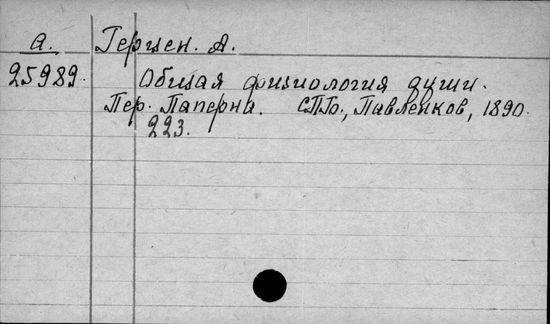 а. Герцен. А.
25989. Общая физиология души.
Пер. Паперна. СПб., Павленков, 1890.
223.